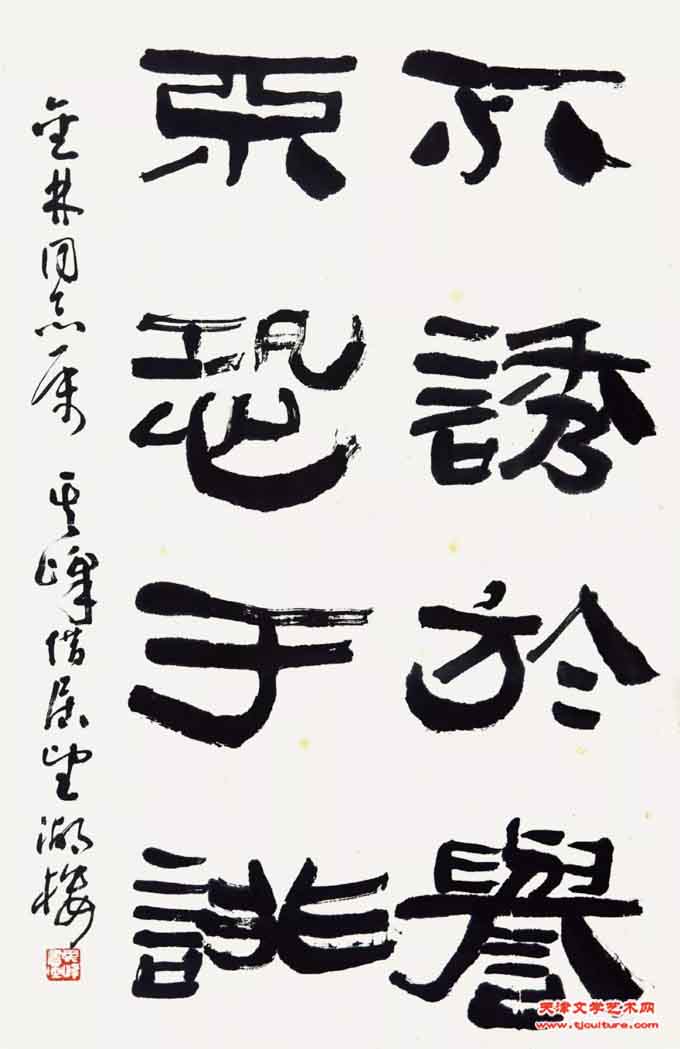 不誘於譽
不恐于誹
奎林同志属 其峰借居望湖楼
天津文学艺术网
www.tjculture.com